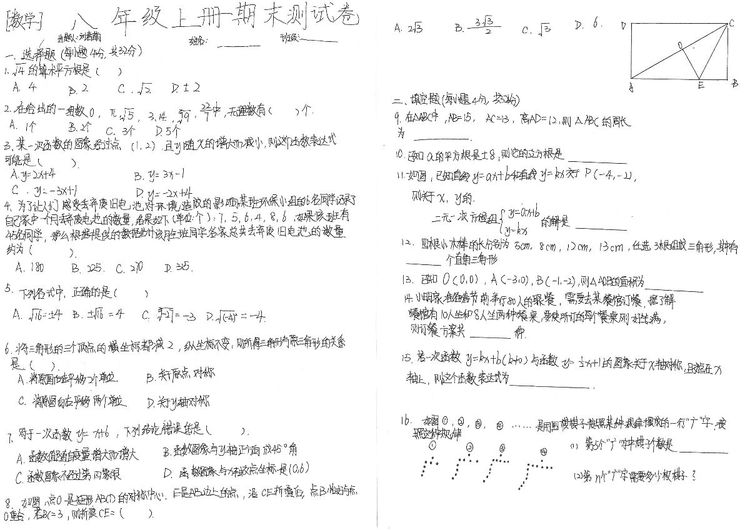 [数学] 八年级上册期末测试卷
姓名: 班级:
一. 选择题 (每小题4分, 共32分)
1. √4的算术平方根是( )
A. 4 B. 2 C. √2 D. ±2
2. 在给出的一组数0, π, √5, 3.14, 中, 无理数有( )个.
A. 1个 B. 2个 C. 3个 D. 5个
3. 某一次函数的图象经过点(1, 2), 且y随x的增大而减小, 则这个函数表达式
可能是( )
A. y=2x+4 B. y=3x-1
C. y=-3x+1 D. y=-2x+4
4. 为了让人们感受丢弃废旧电池对环境造成的影响, 某班环保小组的6名同学记录了
自己家中一个月丢弃废电池的数量, 结果如下(单位:个): 7, 5, 6, 4, 8, 6, 如果该班有
45名同学, 那么根据提供的数据估计该月全班同学各家总共丢弃废旧电池的数量
约为( )
A. 180 B. 225 C. 270 D. 315
5. 下列各式中, 正确的是( )
A. √16=±4 B. ±√16=4 C. = -3 D. = -4
6. 将三角形的三个顶点的横坐标都减2, 纵坐标不变, 则所得三角形与原三角形的关系
是( )
A. 将原图向左平移两个单位 B. 关于原点对称
C. 将原图向右平移两个单位 D. 关于y轴对称
7. 对于一次函数y= x+6, 下列结论错误的是( )
A. 函数值随自变量增大而增大 B. 函数图象与x轴正方向成45°角
C. 函数图象不经过第四象限 D. 函数图象与x轴交点坐标是(0,6)
8. 如图, 点O是矩形ABCD的对称中心, E是AB边上的点, 沿CE折叠后, 点B恰好与点
O重合, 若BC=3, 则折痕CE=( )
A. 2√3 B. 3√3/2 C. √3 D. 6
D C O A E B
二. 填空题 (每小题4分, 共32分)
9. 在△ABC中, AB=15, AC=13, 高AD=12, 则△ABC的周长
为
10. 已知a的平方根是±8, 则它的立方根是
11. 如图, 已知直线y=ax+b和直线y=kx交于P(-4,-2),
则关于x, y的
二元一次方程组{y=ax+b y=kx 的解是
12. 四根小木棒的长分别为5cm, 8cm, 12cm, 13cm, 任选3根组成三角形, 其中有
个直角三角形
13. 已知O(0,0), A(-3,0), B(-1,-2), 则△AOB的面积为
餐馆有10人坐和8人坐两种餐桌,
则订餐方案共 种.
15. 若一次函数y=kx+b(k≠0)与函数y=½x+1的图象关于x轴对称, 且交点在x
轴上, 则这个函数表达式为
16. 如图①, ②, ③, ④, …… 是用围棋棋子按照某种规律摆成的一行"广"字, 按
照这种规律
① ② ③ ④
(1) 第5个"广"字中棋子个数是
(2) 第n个"广"字需要多少枚棋子?